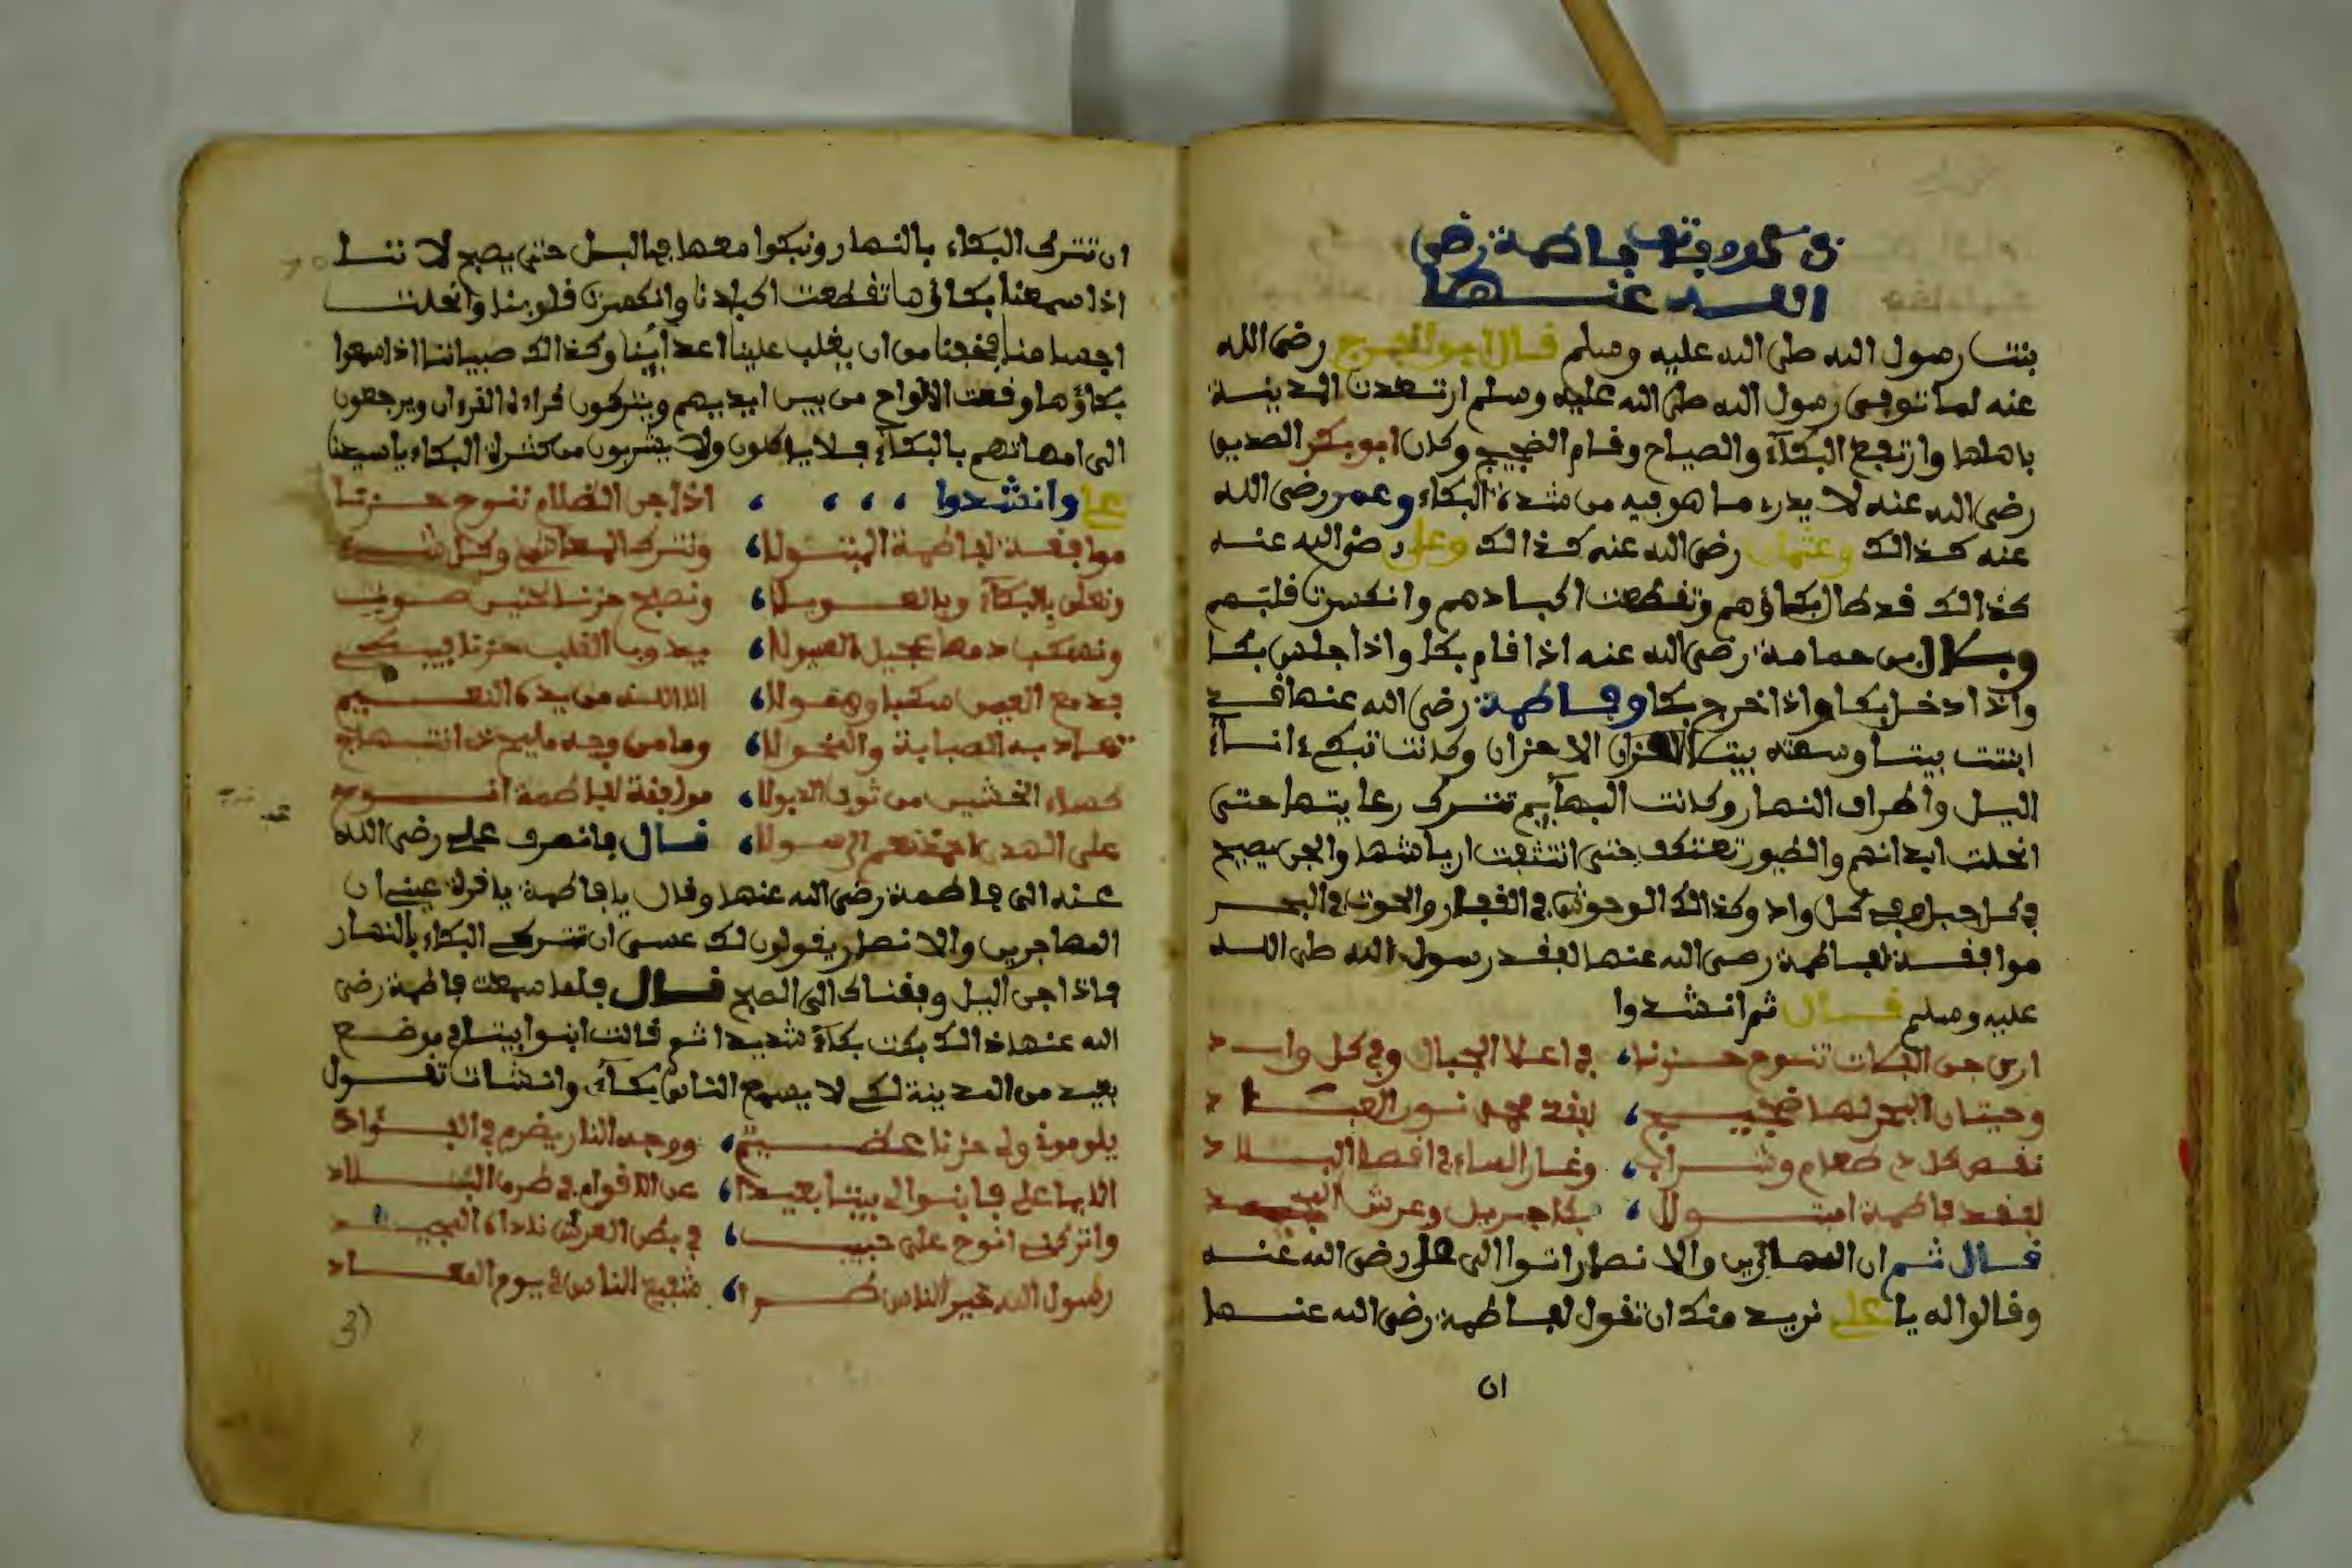 ذكر وفات فاطمة رضي
الله عنها
بنت رسول الله صلى الله عليه وسلم قال ابو الفرج رضى الله
عنه لما توفى رسول الله صلى الله عليه وسلم ارتعدت المدينة
باهلها وارتفع البكآء والصياح وقام الضجيج وكان ابو بكر الصديق
رضى الله عنه لا يدرى ما هو فيه من شدة البكاء وعمر رضى الله
عنه كذالك وعثمان رضى الله عنه كذالك وعلى رضى الله عنه
كذالك قد طال بكاؤهم وتقطعت اكبادهم وانكسرت قلبهم
وبلال بن حمامة رضى الله عنه اذا قام بكا واذا جلس بكا
واذا دخل بكا واذا خرج بكا وفاطمة رضى الله عنها قد
ابنت بيتا وسمته بيت الاحزان وكانت تبكى ءانآء
اليل واطراف النهار وكانت البهآيم تترك رعايتها حتى
انحلت ابدانهم والطيور تعتكف حتى انتتفت ارياشها والجن يصيح
في كل جبل وفي كل واد وكذالك الوحوش في القفار والحوت في البحر
موافقة لفاطمة رضى الله عنها لفقد رسول الله صلى الله
عليه وسلم قال ثم انشدوا
ارى جن الفلات تنوح حزنا، في اعلا الجبال وفي كل واد
وحيتان البحر لها ضجيج، لفقد محمد نور العباد
نقص كل طعام وشراب، وغار الماء في اقصا البلاد
لفقد فاطمة ابتولا، بكا جبريل وعرش المجيد
قال ثم ان المهاجرين والانصار اتوا الى على رضى الله عنه
وقالوا له يا على نريد منك ان تقول لفاطمة رضى الله عنها
ان
ان تترك البكاء بالنهار ونبكوا معها في اليل حتى يصبح لا ننا
اذا سمعنا بكاؤها تقطعت اكبادنا وانكسرت قلوبنا وانحلت
اجسامنا فخفنا من ان يغلب علينا اعدآينا وكذالك صبياننا اذا سمعوا
بكاؤها وقعت الالواح من بين ايديهم ويتركون قراءة القرءان ويرجعون
الى امهاتهم بالبكآء فلا ياكلون ولا يشربون من كثرة البكاء يا سيدنا
على وانشدوا ، ، ، ، اذا جن الظلام تنوح حزنا
موافقة لفاطمة البتولا، ونترك المعاش وكل شىء
ونعلى بالبكآء وبالعويلا، ونصبح حزنا الحنين صوت
ونسكب دمعا يجيل السيولا، يذوب القلب حزنا فيبكى
بدمع العين سكبا وهمولا، الا الله من يده النعيم
تهاد به الصبابة والنحولا، وما من وجه مليح ابتهاج
كصداء الخشين من ثوب الذبولا، موافقة لفاطمة انوح
على الهدى احمد نعم الرسولا، قال فانصرف على رضى الله
عنه الى فاطمة رضى الله عنها وقال يا فاطمة يا قرة عينى ان
المهاجرين والانصار يقولون لك عسى ان تتركى البكاء بالنهار
فاذا جن اليل وافقناك الى الصبح قال فلما سمعت فاطمة رضى
الله عنها ذالك بكت بكآء شديدا ثم قالت ابنوا بيتا في موضع
بعيد من المدينة لكى لا يسمع الناس بكآء، وانشات تقول
يلومونى ولى حزنا عظيم، ووجد النار يضرم في الفؤاد
الا يا على فابنوا لى بيتا بعيدا، عن الاقوام في طرف البلاد
واتركنى انوح على حبيب، في بطن العرش ناداه المجيد
رسول الله خير الناس طرا، شفيع الناس في يوم المعاد